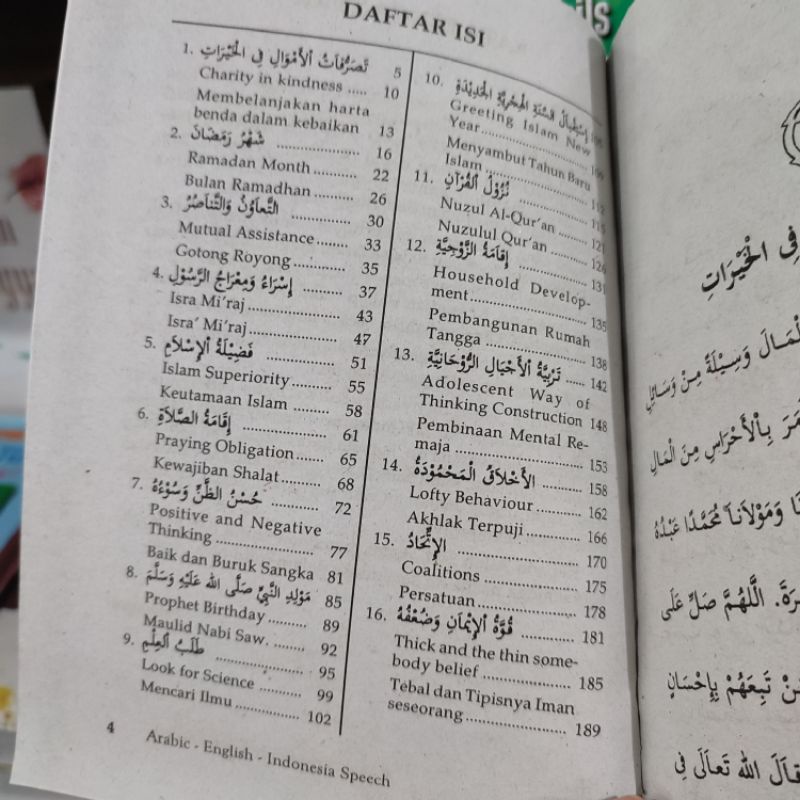 DAFTAR ISI
1. تَصَرُّفَاتُ الْأَمْوَالِ فِي الْخَيْرَاتِ 5
Charity in kindness ..... 10
Membelanjakan harta
benda dalam kebaikan 13
2. شَهْرُ رَمَضَانَ ................ 16
Ramadan Month .......... 22
Bulan Ramadhan .......... 26
3. التَّعَاوُنُ وَالتَّنَاصُرُ ............ 30
Mutual Assistance ....... 33
Gotong Royong ............ 35
4. إِسْرَاءُ وَمِعْرَاجُ الرَّسُوْلِ ......... 37
Isra Mi'raj .................... 43
Isra' Mi'raj .................... 47
5. فَضِيْلَةُ الْإِسْلَامِ ............. 51
Islam Superiority .......... 55
Keutamaan Islam .......... 58
6. إِقَامَةُ الصَّلَاةِ .................. 61
Praying Obligation ....... 65
Kewajiban Shalat .......... 68
7. حُسْنُ الظَّنِّ وَسُوْءُهُ .......... 72
Positive and Negative
Thinking ...................... 77
Baik dan Buruk Sangka 81
8. مَوْلِدِ النَّبِيِّ صَلَّى الله عَلَيْهِ وَسَلَّمَ 85
Prophet Birthday .......... 89
Maulid Nabi Saw. ......... 92
9. طَلَبُ الْعِلْمِ .................. 95
Look for Science .......... 99
Mencari Ilmu ................ 102
10. إِسْتِقْبَالُ السَّنَةِ الْهِجْرِيَّةِ الْجَدِيْدَةِ
Greeting Islam New
Year
Menyambut Tahun Baru
Islam ......................... 112
11. نُزُوْلُ الْقُرْآنِ ................ 115
Nuzul Al-Qur'an ........ 121
Nuzulul Qur'an .......... 126
12. إِقَامَةُ الزَّوْجِيَّةِ ............. 131
Household Develop-
ment .......................... 135
Pembangunan Rumah
Tangga ....................... 138
13. تَرْبِيَّةُ الْأَجْيَالِ الرُّوْحَانِيَّةِ ..... 142
Adolescent Way of
Thinking Construction 148
Pembinaan Mental Re-
maja ........................... 153
14. الْأَخْلَاقُ الْمَحْمُوْدَةُ ......... 158
Lofty Behaviour .......... 162
Akhlak Terpuji ............ 166
15. الْإِتِّحَادُ ....................... 170
Coalitions ................... 175
Persatuan .................... 178
16. قُوَّةُ الْإِيْمَانِ وَضُعْفُهُ .......... 181
Thick and the thin some-
body belief ................. 185
Tebal dan Tipisnya Iman
seseorang .................... 189
4 Arabic - English - Indonesia Speech
فِي الْخَيْرَاتِ
الْمَالَ وَسِيْلَةً مِنْ وَسَائِلِ
بِالْأَحْرَاسِ مِنَ الْمَالِ
وَمَوْلَانَا مُحَمَّدًا عَبْدُهُ
اَللّٰهُمَّ صَلِّ عَلَى
تَبِعَهُمْ بِإِحْسَانٍ
قَالَ الله تَعَالَى فِي